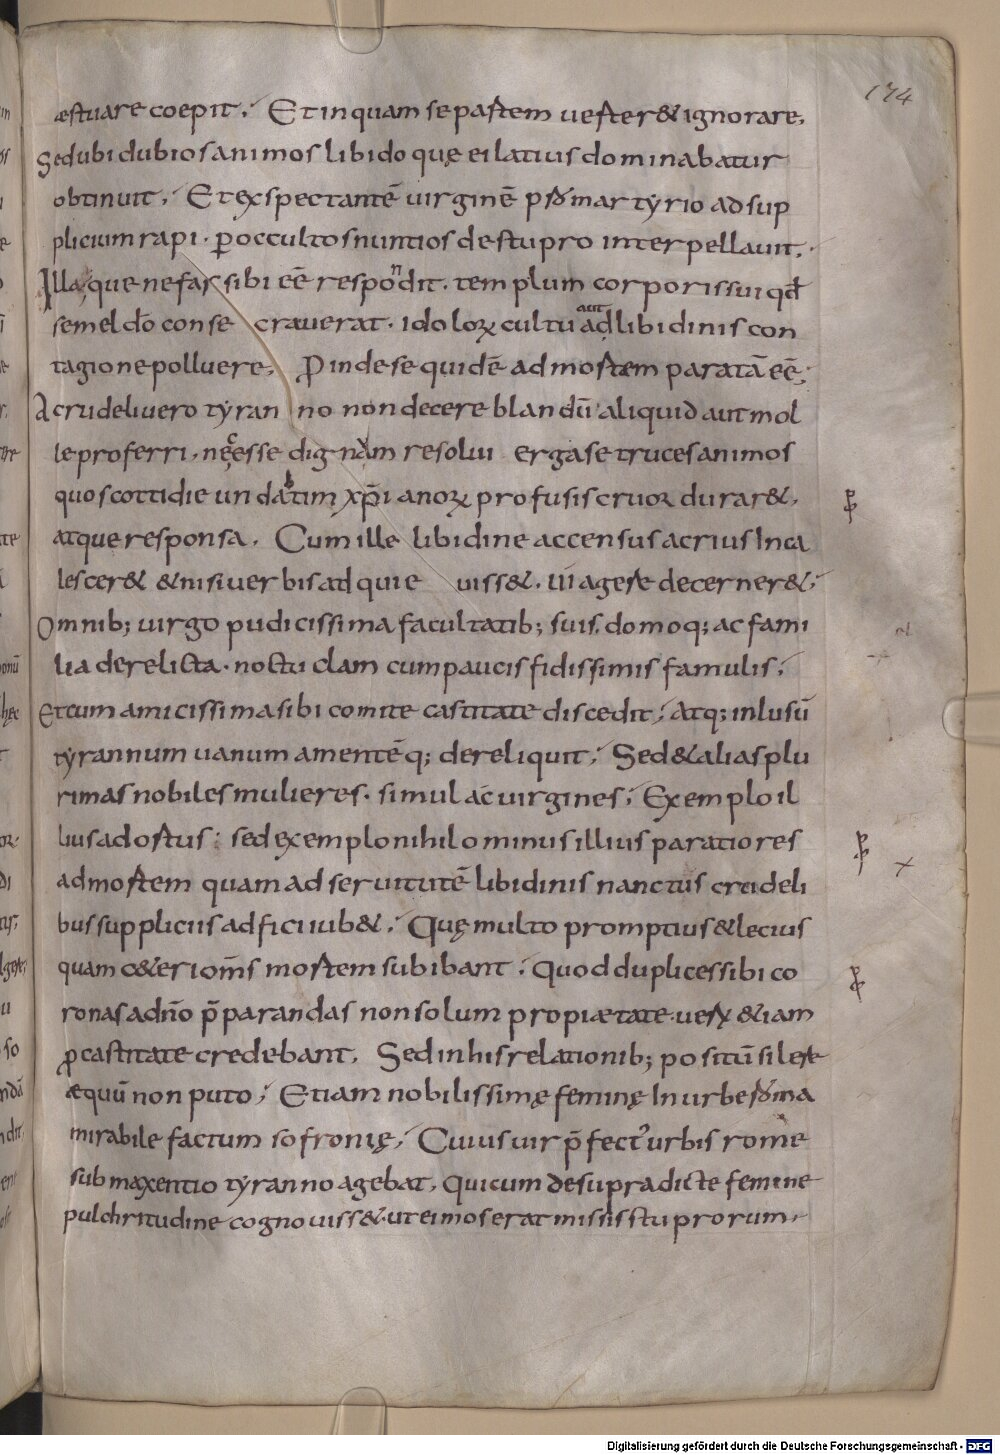 174
æstuare coepit; Et in quam se partem uester& ignorare.
Sed ubi dubios animos libido quę ei latius dominabatur
obtinuit; Et exspectantē uirginē p̄ martyrio ad sup
plicium rapi. ꝑ occultos nuntios de stupro interpellauit.
Illa que nefas sibi eē̄ respondit. templum corporis sui qđ
semel dō conse crauerat. idoloꝝ cultu aut ad libidinis con
tagione polluere; Proinde se quidē ad mortem paratā eē;
A crudeli uero tyran no non decere blandū aliquid aut mol
le proferri, nec esse dignam resolui erga se truces animos
quos cottidie undatim xp̄ianoꝝ profusis cruor durar&.
atque responsa. Cum ille libidine accensus acrius inca
lescer& & nisi uerbis adquie uiss&. ui agere decerner&;
Omnib; uirgo pudicissima facultatib; suis. domoq; ac fami
lia derelicta. noctu clam cum paucis fidissimis famulis;
Et cum amicissima sibi comite castitate discedit; Atq; inlusū
tyrannum uanum amentēq; dereliquit; Sed & alias plu
rimas nobiles mulieres. simul ac uirgines; Exemplo il
lius adortus: sed exemplo nihilominus illius paratiores
ad mortem quam ad seruitutē libidinis nanctus crudeli
bus suppliciis adfici iub&; Quę multo promptius & lecius
quam c&eri om̄s mortem subibant; Quod duplices sibi co
ronas a dn̄o p̄parandas non solum pro piætate. uerꝝ &iam
ꝓ castitate credebant. Sed in his relationib; positū silere
æquū non puto; Etiam nobilissimę feminę in urbe roma
mirabile factum sofronię; Cuius uir p̄fect' urbis rome
sub maxentio tyranno agebat, qui cum de supradicte femine
pulchritudine cognouiss&. ut ei mos erat missis stuprorum.
Digitalisierung gefördert durch die Deutsche Forschungsgemeinschaft - DFG